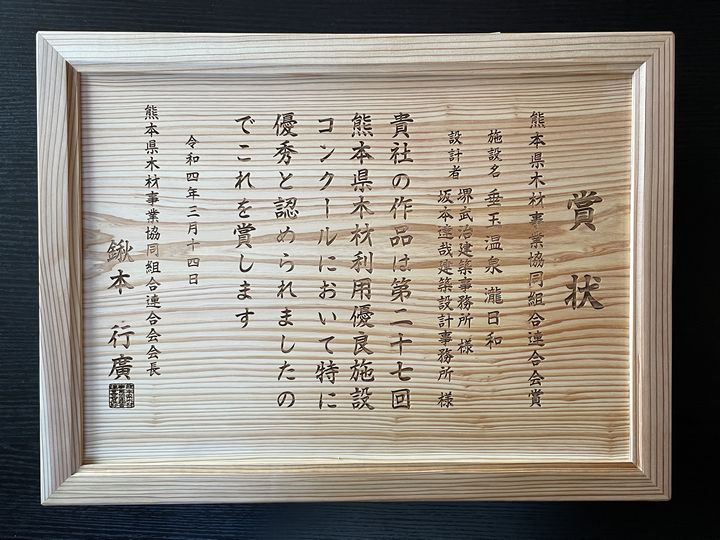 賞状
熊本県木材事業協同組合連合会賞
施設名 垂玉温泉 瀧日和
設計者 堺武治建築事務所 様
坂本達哉建築設計事務所 様
貴社の作品は第二十七回
熊本県木材利用優良施設
コンクールにおいて特に
優秀と認められましたの
でこれを賞します
令和四年三月十四日
熊本県木材事業協同組合連合会会長
鍬本 行廣